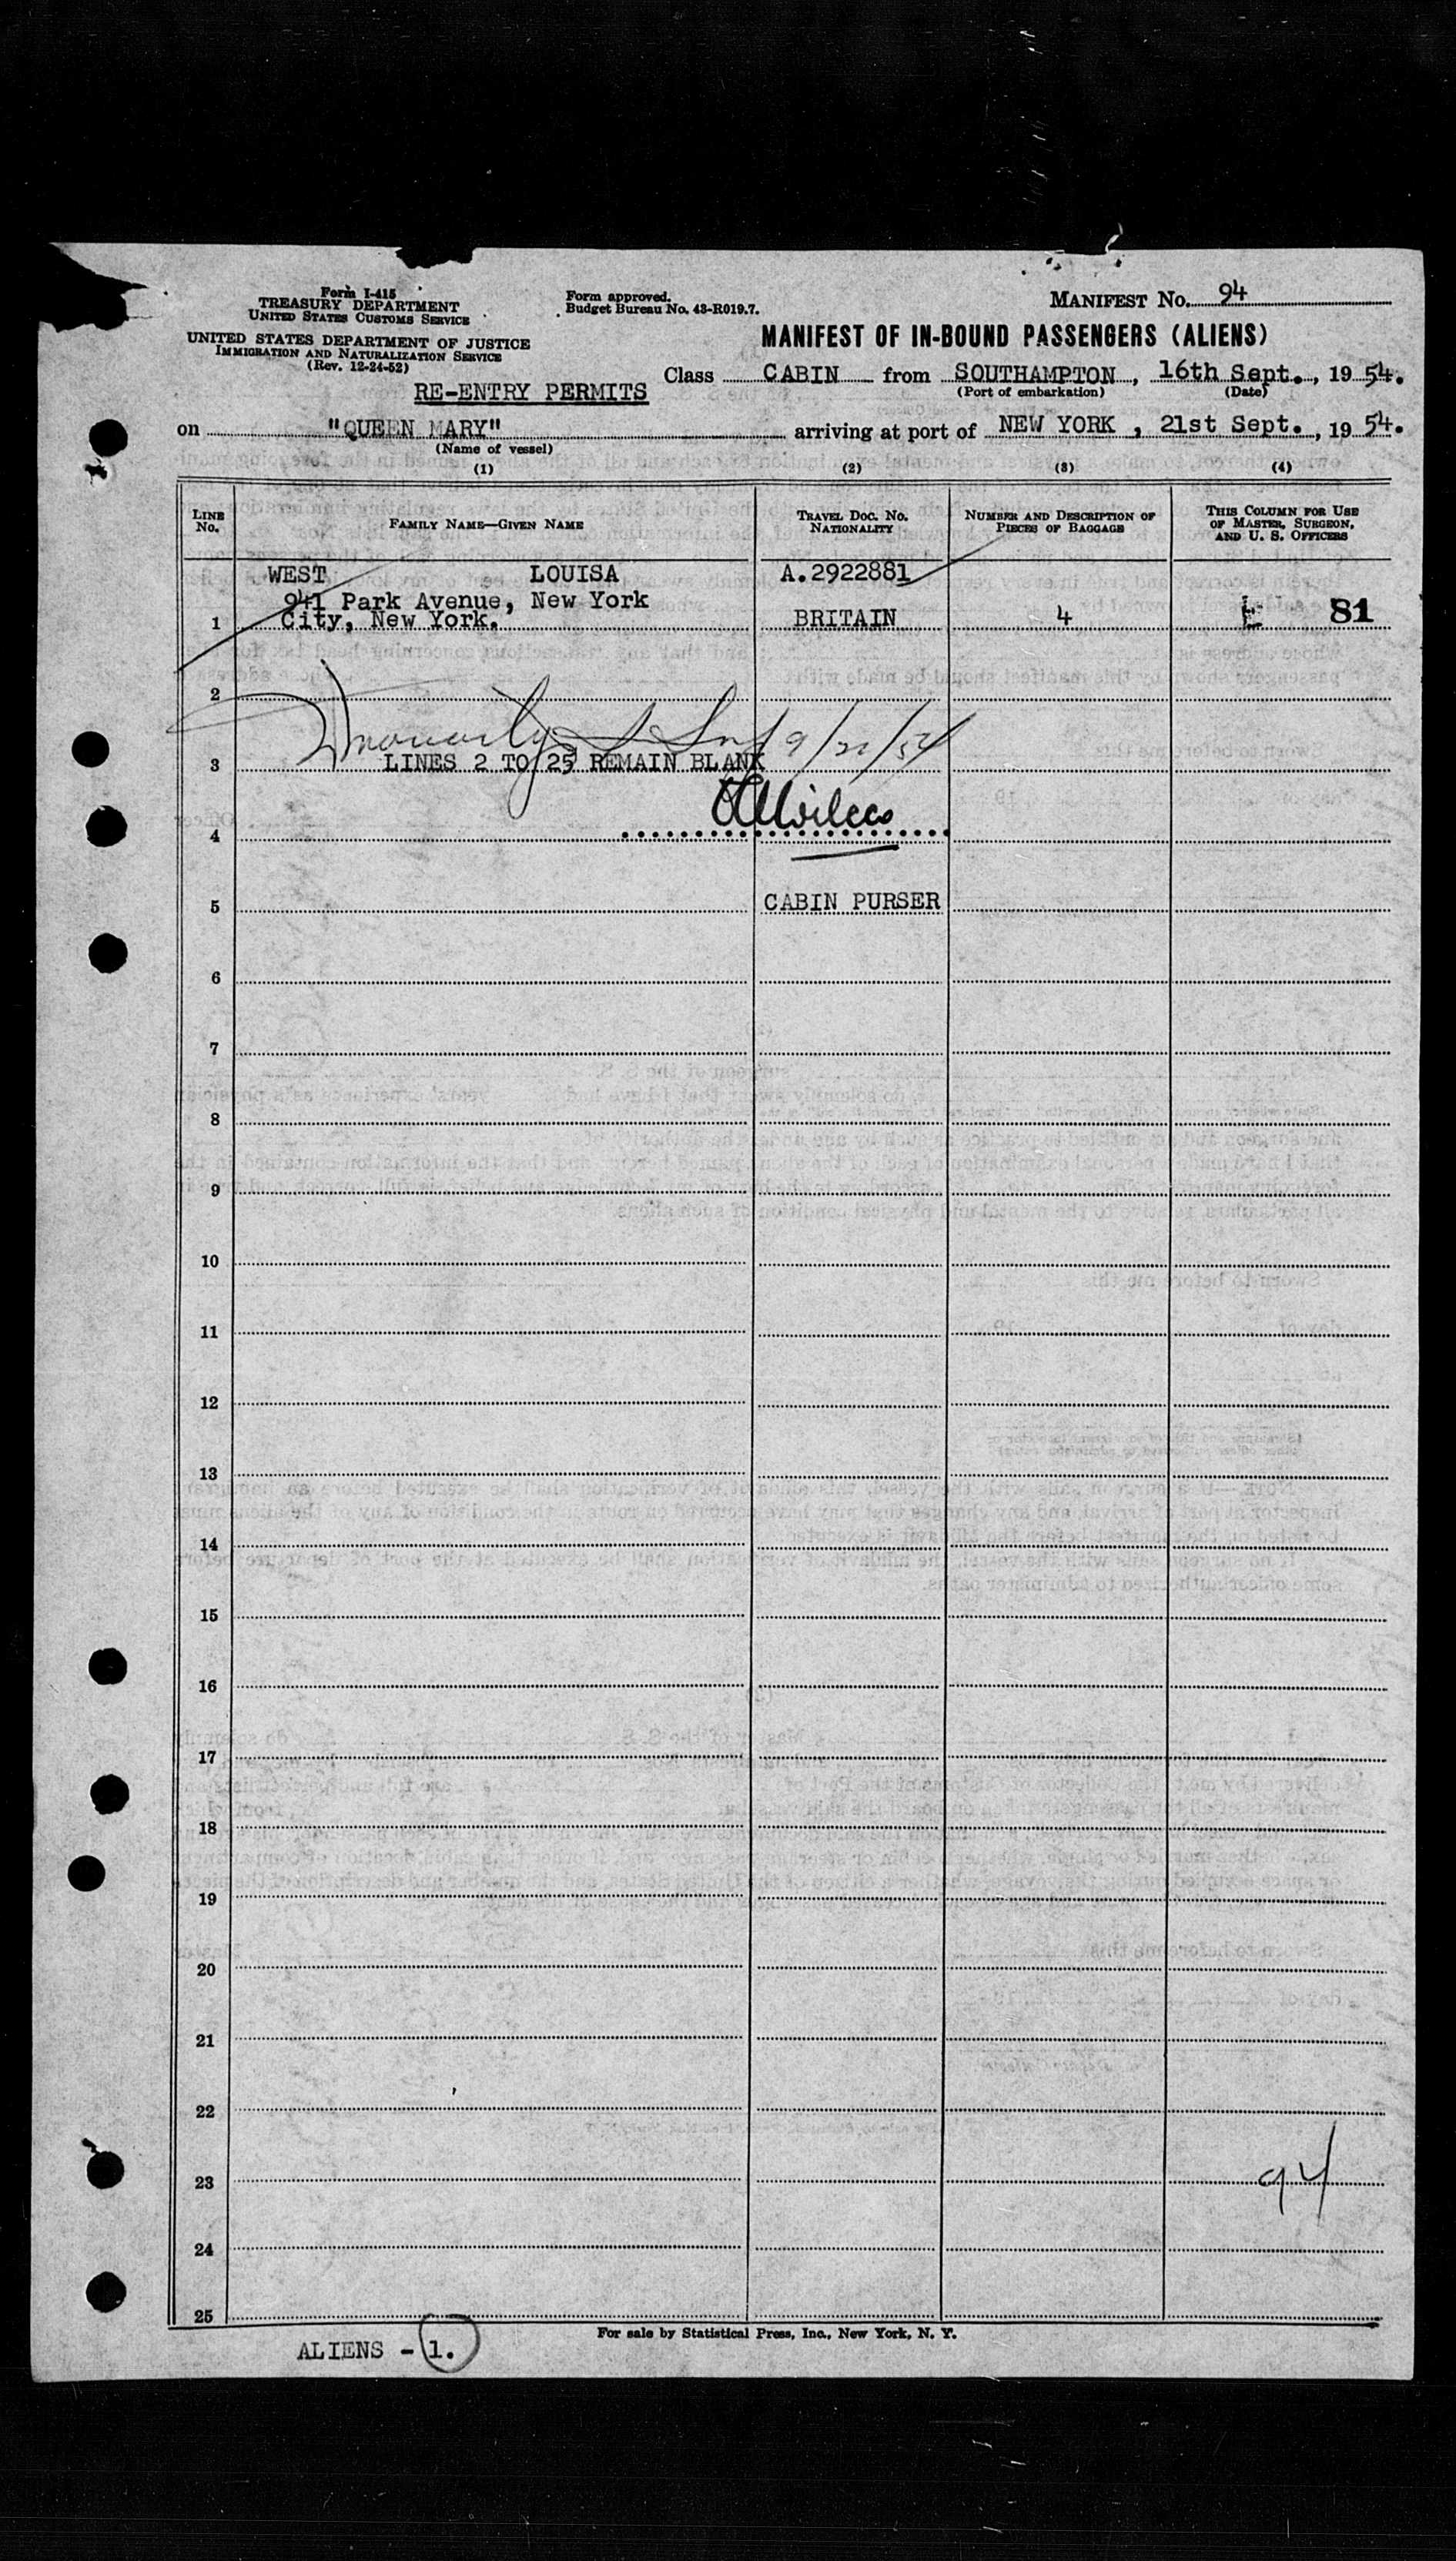 Form I-415
TREASURY DEPARTMENT
UNITED STATES CUSTOMS SERVICE
UNITED STATES DEPARTMENT OF JUSTICE
IMMIGRATION AND NATURALIZATION SERVICE
(Rev. 12-24-52)
Form approved.
Budget Bureau No. 43-R019.7.
MANIFEST NO. 94
MANIFEST OF IN-BOUND PASSENGERS (ALIENS)
RE-ENTRY PERMITS
Class CABIN from SOUTHAMPTON, 16th Sept., 1954.
(Port of embarkation) (Date)
on "QUEEN MARY" arriving at port of NEW YORK, 21st Sept., 1954.
(Name of vessel)
(1) (2) (3) (4)
LINE NO. FAMILY NAME—GIVEN NAME TRAVEL DOC. NO. NATIONALITY NUMBER AND DESCRIPTION OF PIECES OF BAGGAGE THIS COLUMN FOR USE OF MASTER, SURGEON, AND U. S. OFFICERS
WEST LOUISA A.2922881
941 Park Avenue, New York
1 City, New York. BRITAIN 4 81
2
9/21/54
3 LINES 2 TO 25 REMAIN BLANK
4
5 CABIN PURSER
6
7
8
9
10
11
12
13
14
15
16
17
18
19
20
21
22
23 94
24
25
For sale by Statistical Press, Inc., New York, N. Y.
ALIENS - 1.